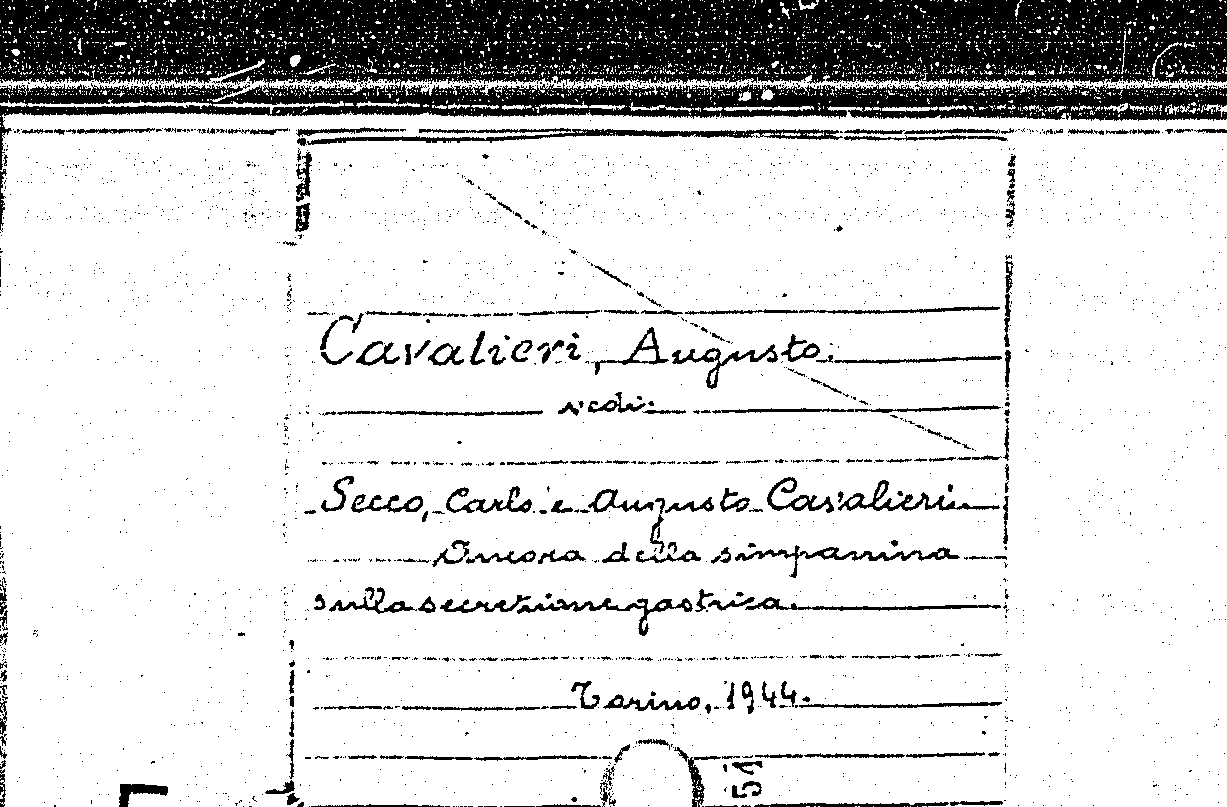 Cavalieri, Augusto.
vedi:
Secco, Carlo e Augusto Cavalieri.
Ancora della simpamina
sulla secrezione gastrica.
Torino, 1944.
51